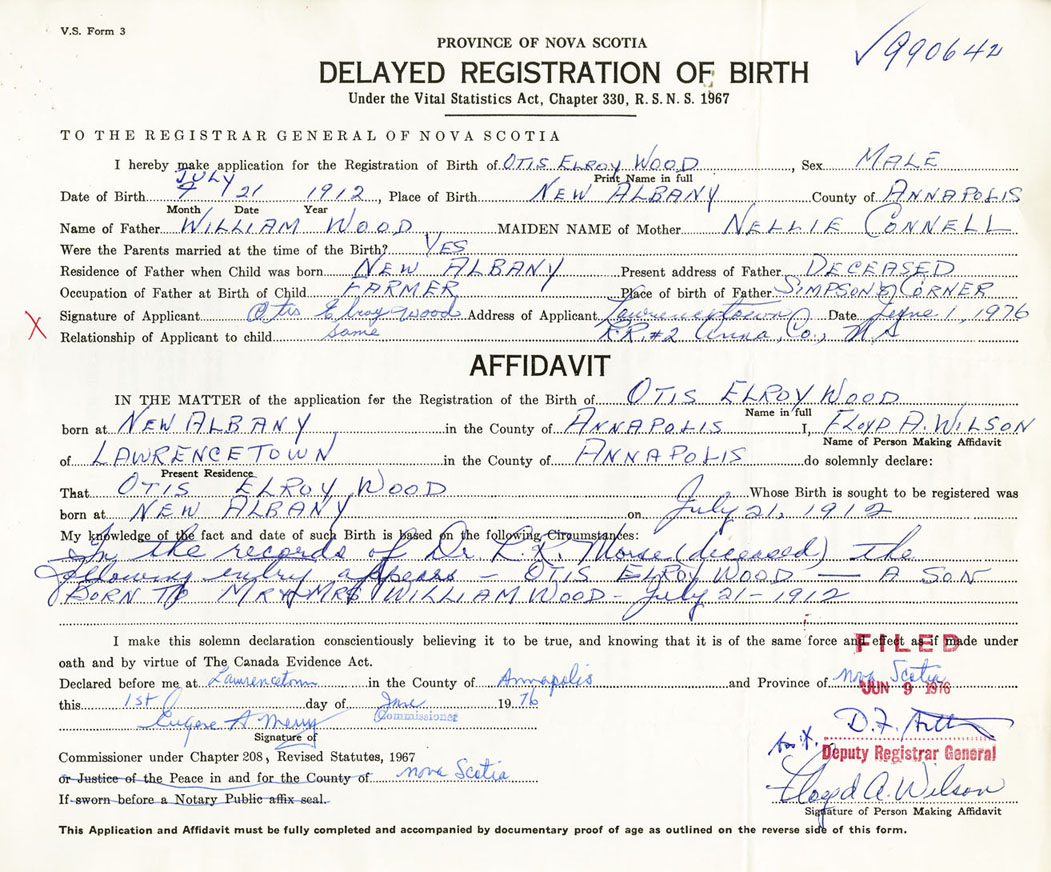 V.S. Form 3
PROVINCE OF NOVA SCOTIA
√990642
DELAYED REGISTRATION OF BIRTH
Under the Vital Statistics Act, Chapter 330, R.S.N.S. 1967
TO THE REGISTRAR GENERAL OF NOVA SCOTIA
I hereby make application for the Registration of Birth of OTIS ELROY WOOD, Sex MALE
Print Name in full
JULY
Date of Birth 7 21 1912, Place of Birth NEW ALBANY County of ANNAPOLIS
Month Date Year
Name of Father WILLIAM WOOD MAIDEN NAME of Mother NELLIE CONNELL
Were the Parents married at the time of the Birth? YES
Residence of Father when Child was born NEW ALBANY Present address of Father DECEASED
Occupation of Father at Birth of Child FARMER Place of birth of Father SIMPSON'S CORNER
X Signature of Applicant Otis Elroy Wood Address of Applicant Lawrencetown Date June 1, 1976
Relationship of Applicant to child same R.R.#2 Anna, Co., N.S
AFFIDAVIT
IN THE MATTER of the application for the Registration of the Birth of OTIS ELROY WOOD
Name in full
born at NEW ALBANY in the County of ANNAPOLIS I, FLOYD A. WILSON
Name of Person Making Affidavit
of LAWRENCETOWN in the County of ANNAPOLIS do solemnly declare:
Present Residence
That OTIS ELROY WOOD Whose Birth is sought to be registered was
born at NEW ALBANY on July 21, 1912
My knowledge of the fact and date of such Birth is based on the following Circumstances:
In the records of Dr. L.R. Morse (deceased) the
following entry appears - OTIS ELROY WOOD - A SON
BORN TO MR & MRS WILLIAM WOOD - July 21-1912
I make this solemn declaration conscientiously believing it to be true, and knowing that it is of the same force and effect as if made under
oath and by virtue of The Canada Evidence Act.
FILED
Declared before me at Lawrencetown in the County of Annapolis and Province of Nova Scotia
JUN 9 1976
this 1st day of June 1976
Eugene A Merry Commissioner
Signature of
D.F.
Deputy Registrar General
Commissioner under Chapter 208, Revised Statutes, 1967
or Justice of the Peace in and for the County of Nova Scotia
If sworn before a Notary Public affix seal.
Floyd A. Wilson
Signature of Person Making Affidavit
This Application and Affidavit must be fully completed and accompanied by documentary proof of age as outlined on the reverse side of this form.